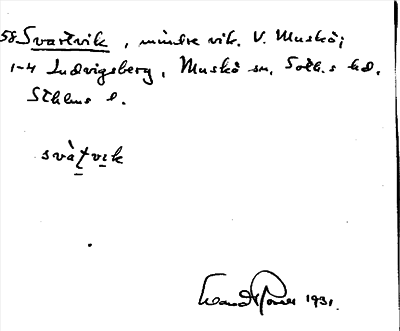 58. Svartvik, mindre vik. V. Muskö;
1-4 Ludvigsberg, Muskö sn, Soth.s hd.
Sthlms l.
svàtvik
1931.